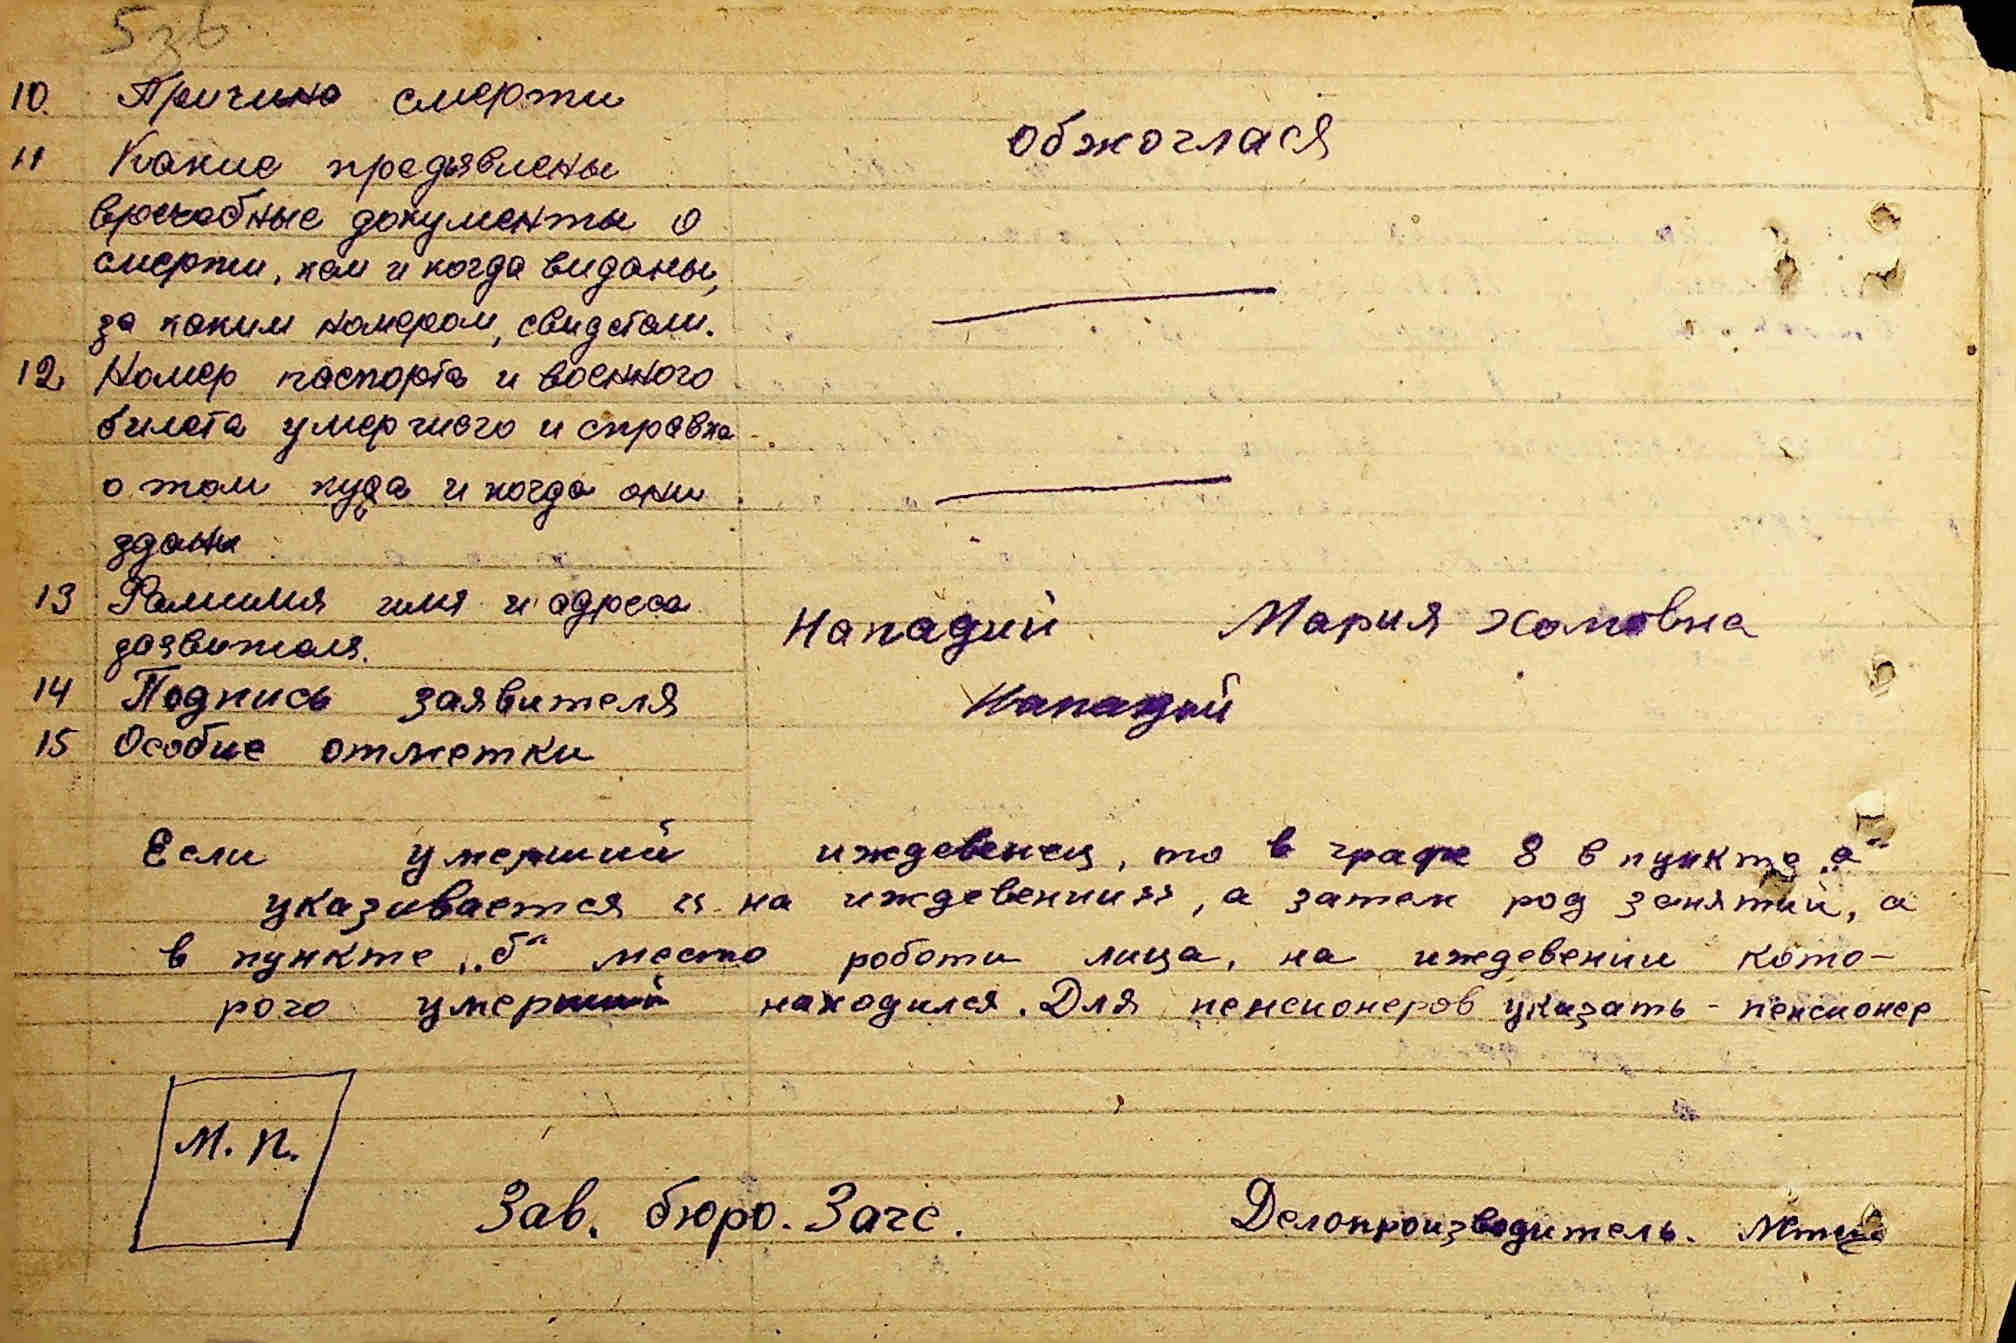 53б.
10. Причина смерти
обжоглася
11 Какие предъявлены
врачебные документы о
смерти, кем и когда виданы,
за каким номером, свидетели.
12. Номер паспорта и военного
билета умерчего и справка
о том куда и когда они
здани
13 Фамилия имя и адреса
заявителя.
Нападий Мария Хомовна
14 Подпись заявителя
Нападий
15 Особие отметки
Если умерший иждевенец, то в графе 8 в пункте „а"
указивается "на иждевении", а затем род занятий, а
в пункте „б" место роботи лица, на иждевении кото-
рого умерший находился. Для пенсионеров указать - пенсионер
М. П.
Зав. бюро. Загс.
Делопроизводитель.